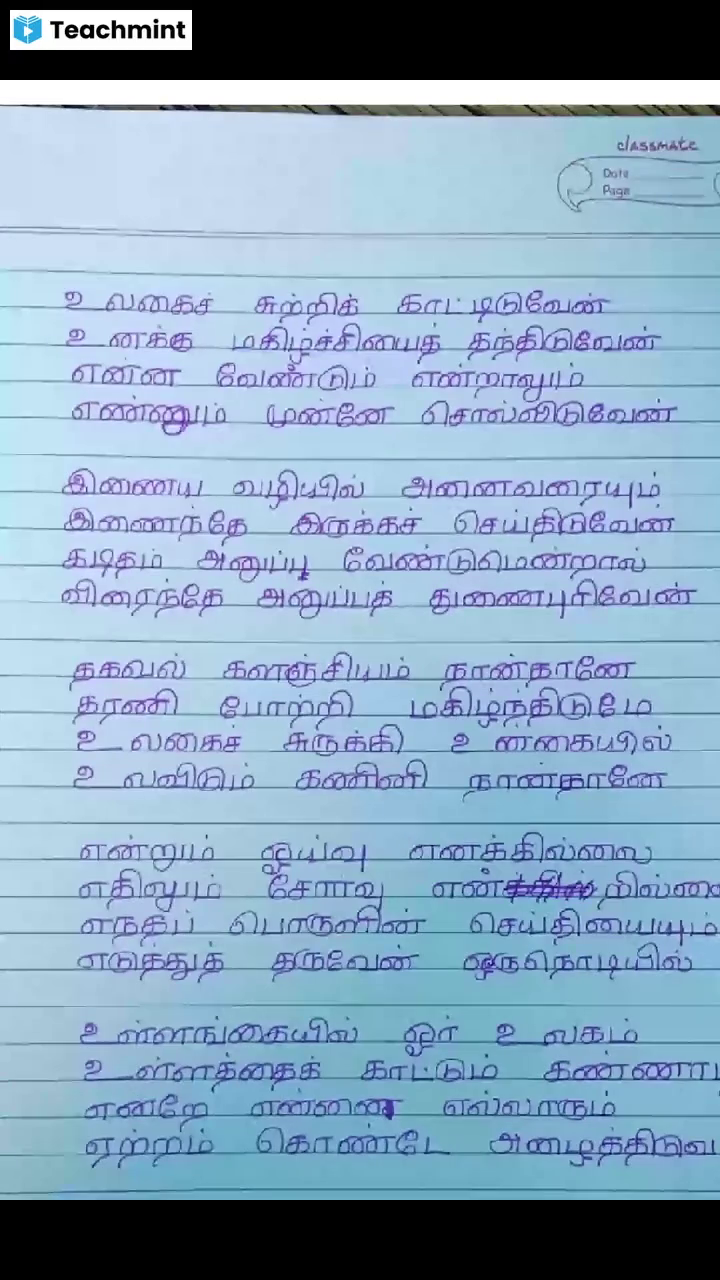 Teachmint
classmate
Date
Page
உலகைச் சுற்றிக் காட்டிடுவேன்
உனக்கு மகிழ்ச்சியைத் தந்திடுவேன்
என்ன வேண்டும் என்றாலும்
எண்ணும் முன்னே சொல்லிடுவேன்
இணைய வழியில் அனைவரையும்
இணைந்தே இருக்கச் செய்திடுவேன்
கடிதம் அனுப்பு வேண்டுமென்றால்
விரைந்தே அனுப்பத் துணைபுரிவேன்
தகவல் களஞ்சியம் நான்தானே
தரணி போற்றி மகிழ்ந்திடுமே
உலகைச் சுருக்கி உன்கையில்
உலவிடும் கணினி நான்தானே
என்றும் ஓய்வு எனக்கில்லை
எதிலும் சோர்வு
எந்தப் பொருளின் செய்தியையும்
எடுத்துத் தருவேன் ஒருநொடியில்
உள்ளங்கையில் ஓர் உலகம்
உள்ளத்தைக் காட்டும்
என்றே என்னை எல்லாரும்
ஏற்றம் கொண்டே